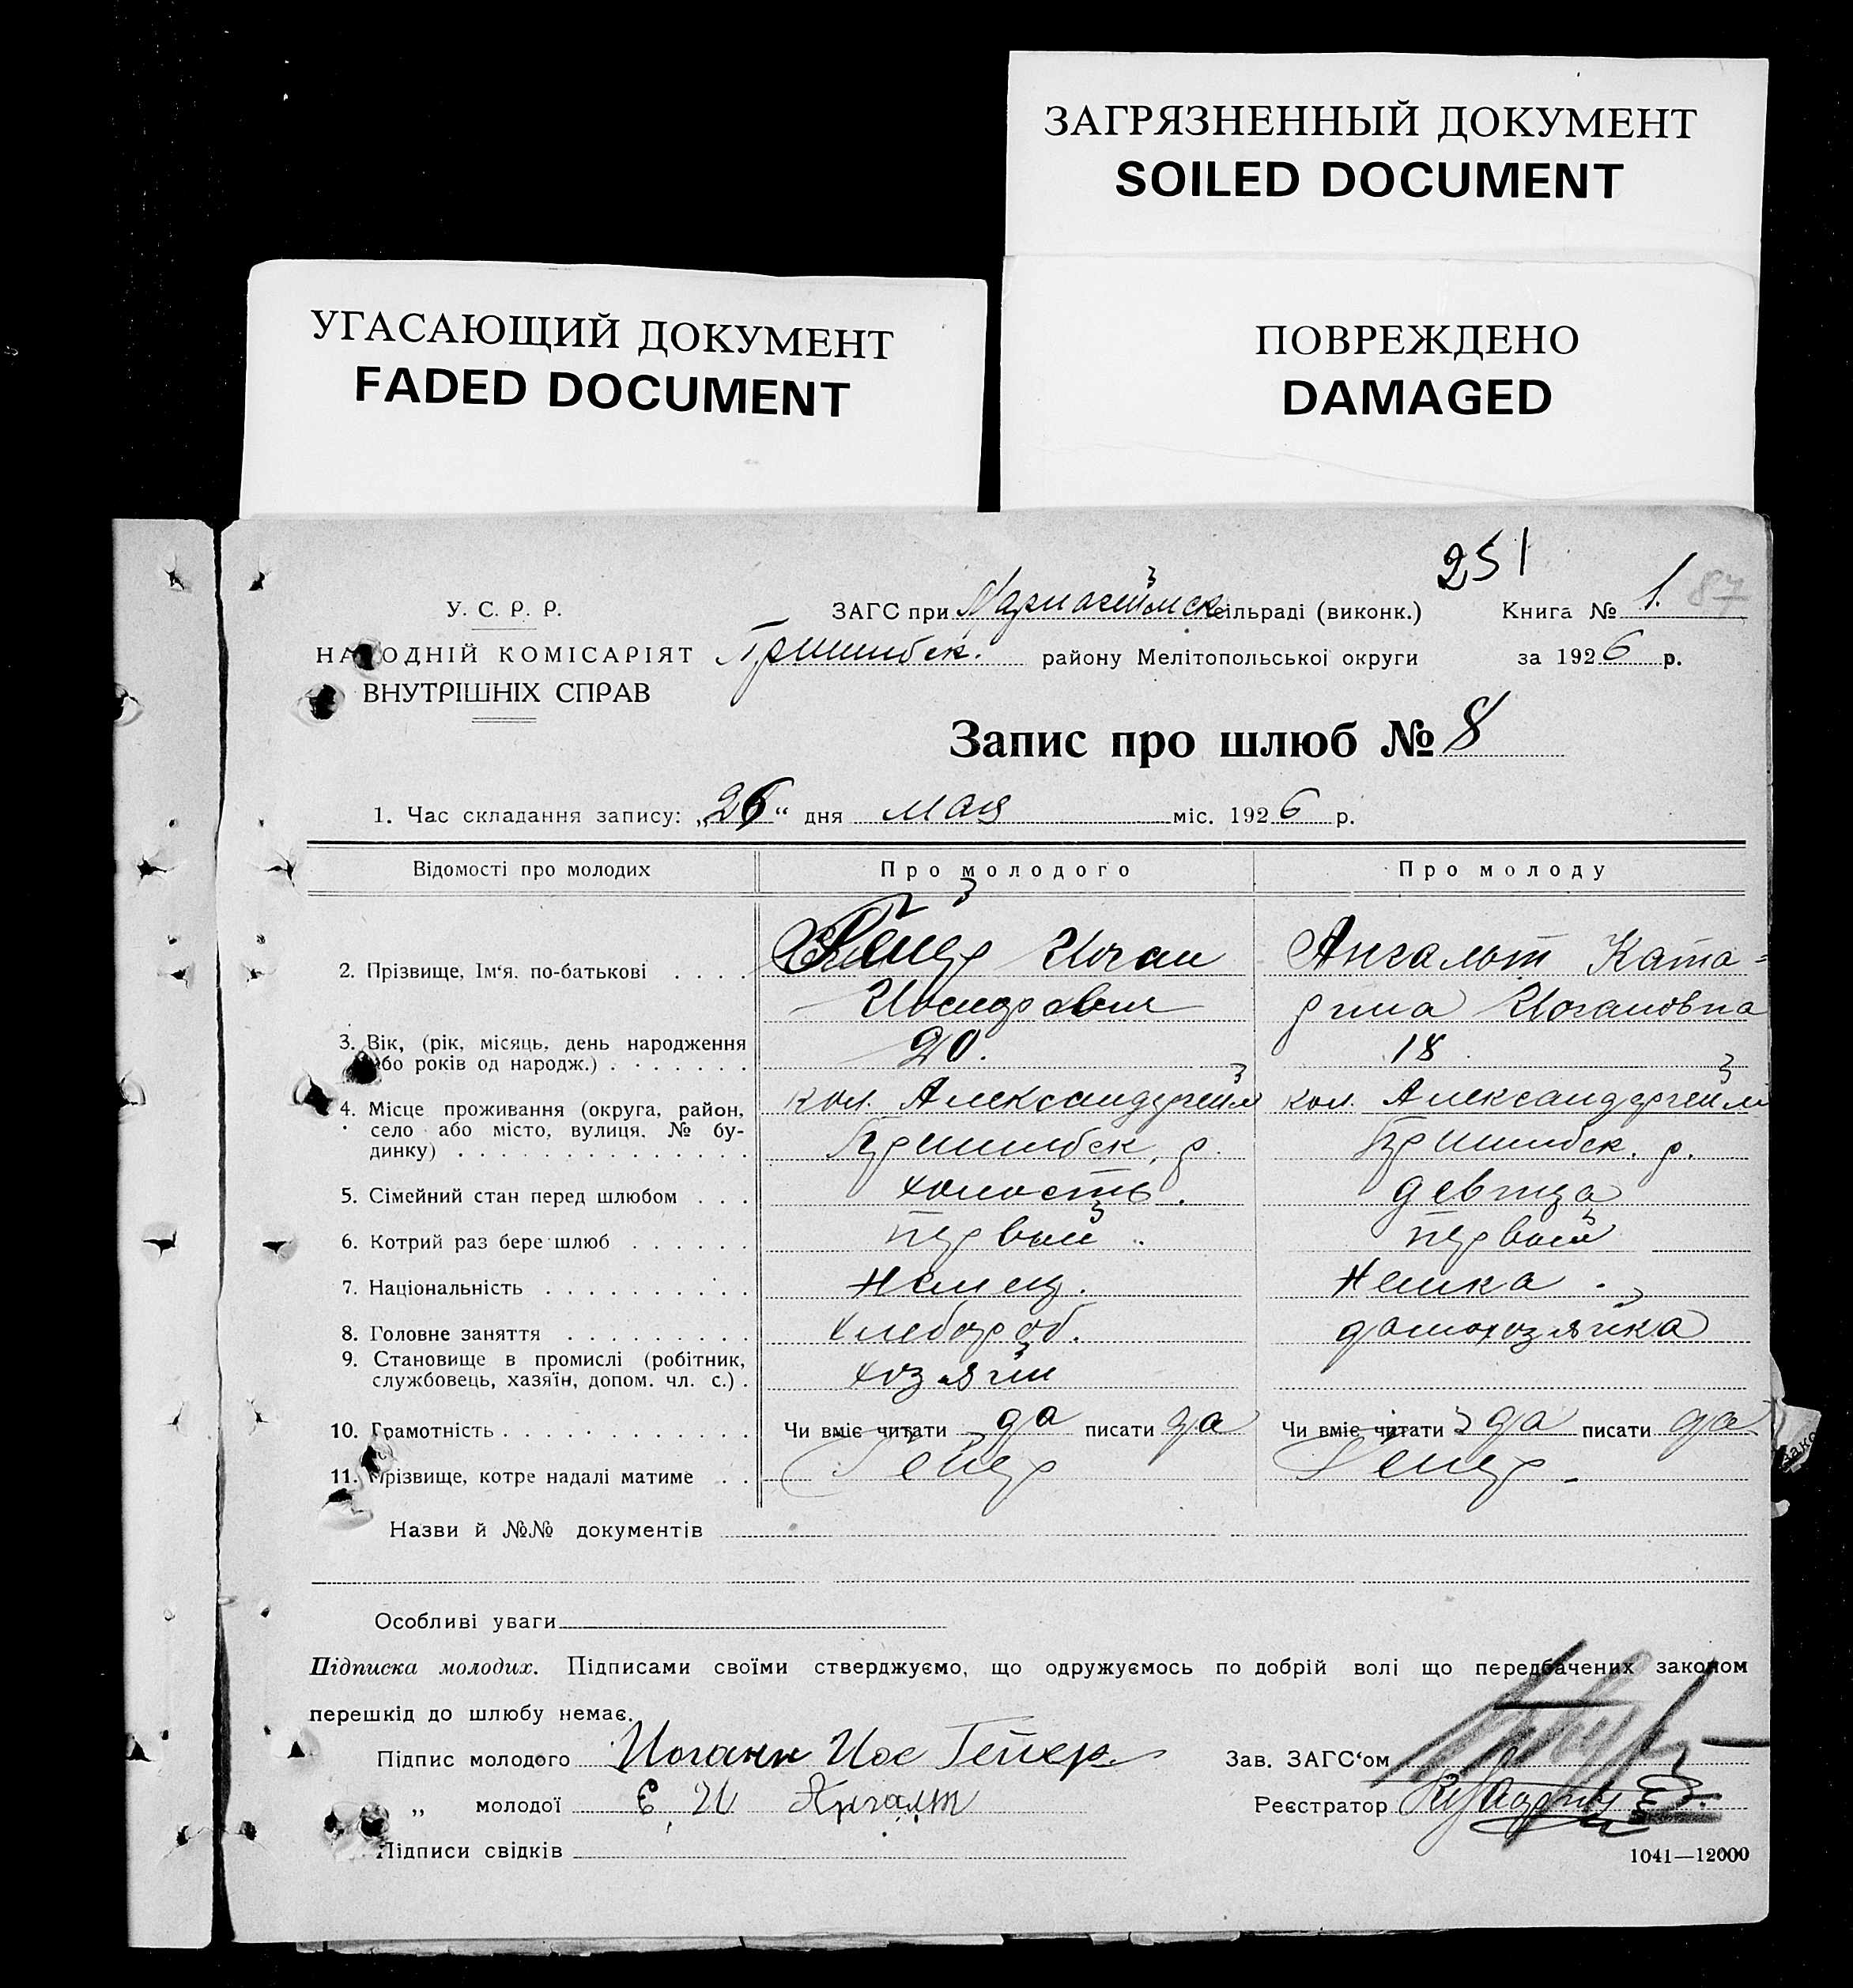 ЗАГРЯЗНЕННЫЙ ДОКУМЕНТ
SOILED DOCUMENT
УГАСАЮЩИЙ ДОКУМЕНТ
FADED DOCUMENT
ПОВРЕЖДЕНО
DAMAGED
251
У. С. Р. Р.
ЗАГС при сільраді (виконк.) Книга № 1. 87
НАРОДНІЙ КОМІСАРІЯТ Пришибск. району Мелітопольської округи за 1926 р.
ВНУТРІШНІХ СПРАВ
Запис про шлюб № 8
1. Час складання запису: „26“ дня мая міс. 1926 р.
Відомості про молодих Про молодого Про молоду
2. Прізвище, Ім‘я. по-батькові . . . . Гейер Иоган Ангальт Ката-
Иосифович рина Йогановна
3. Вік, (рік, місяць, день народження 20. 18
або років од народж.) . . . . . . .
4. Місце проживання (округа, район, кол. Александргейм кол. Александргейм
село або місто, вулиця, № бу- Пришибск. р. Пришибск. р.
динку) . . . . . . . . . . . . . .
5. Сімейний стан перед шлюбом . . . холость. девица
6. Котрий раз бере шлюб . . . . . . первый первый
7. Національність . . . . . . . . . . немец. немка.
8. Головне заняття . . . . . . . . . хлебороб. домохозяйка
9. Становище в промислі (робітник, хозяин
службовець, хазяїн, допом. чл. с.) .
10. Грамотність . . . . . . . . . . . . Чи вміє читати да писати да Чи вміє читати да писати да
11. Прізвище, котре надалі матиме . . Гейер Гейер
Назви й №№ документів
Особливі уваги
Підписка молодих. Підписами своїми стверджуємо, що одружуємось по добрій волі що передбачених законом
перешкід до шлюбу немає.
Підпис молодого Иоганн Иос Гейер Зав. ЗАГС‘ом
„ молодої Є И Ангалт Реєстратор
Підписи свідків
1041—12000